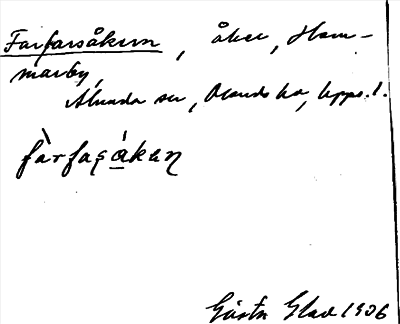 Farfarsåkern, åker, Ham-
marby,
Alunda sn, Olands hd, Upps. l.
fàrfaʂákəɳ
Gösta Glad 1906